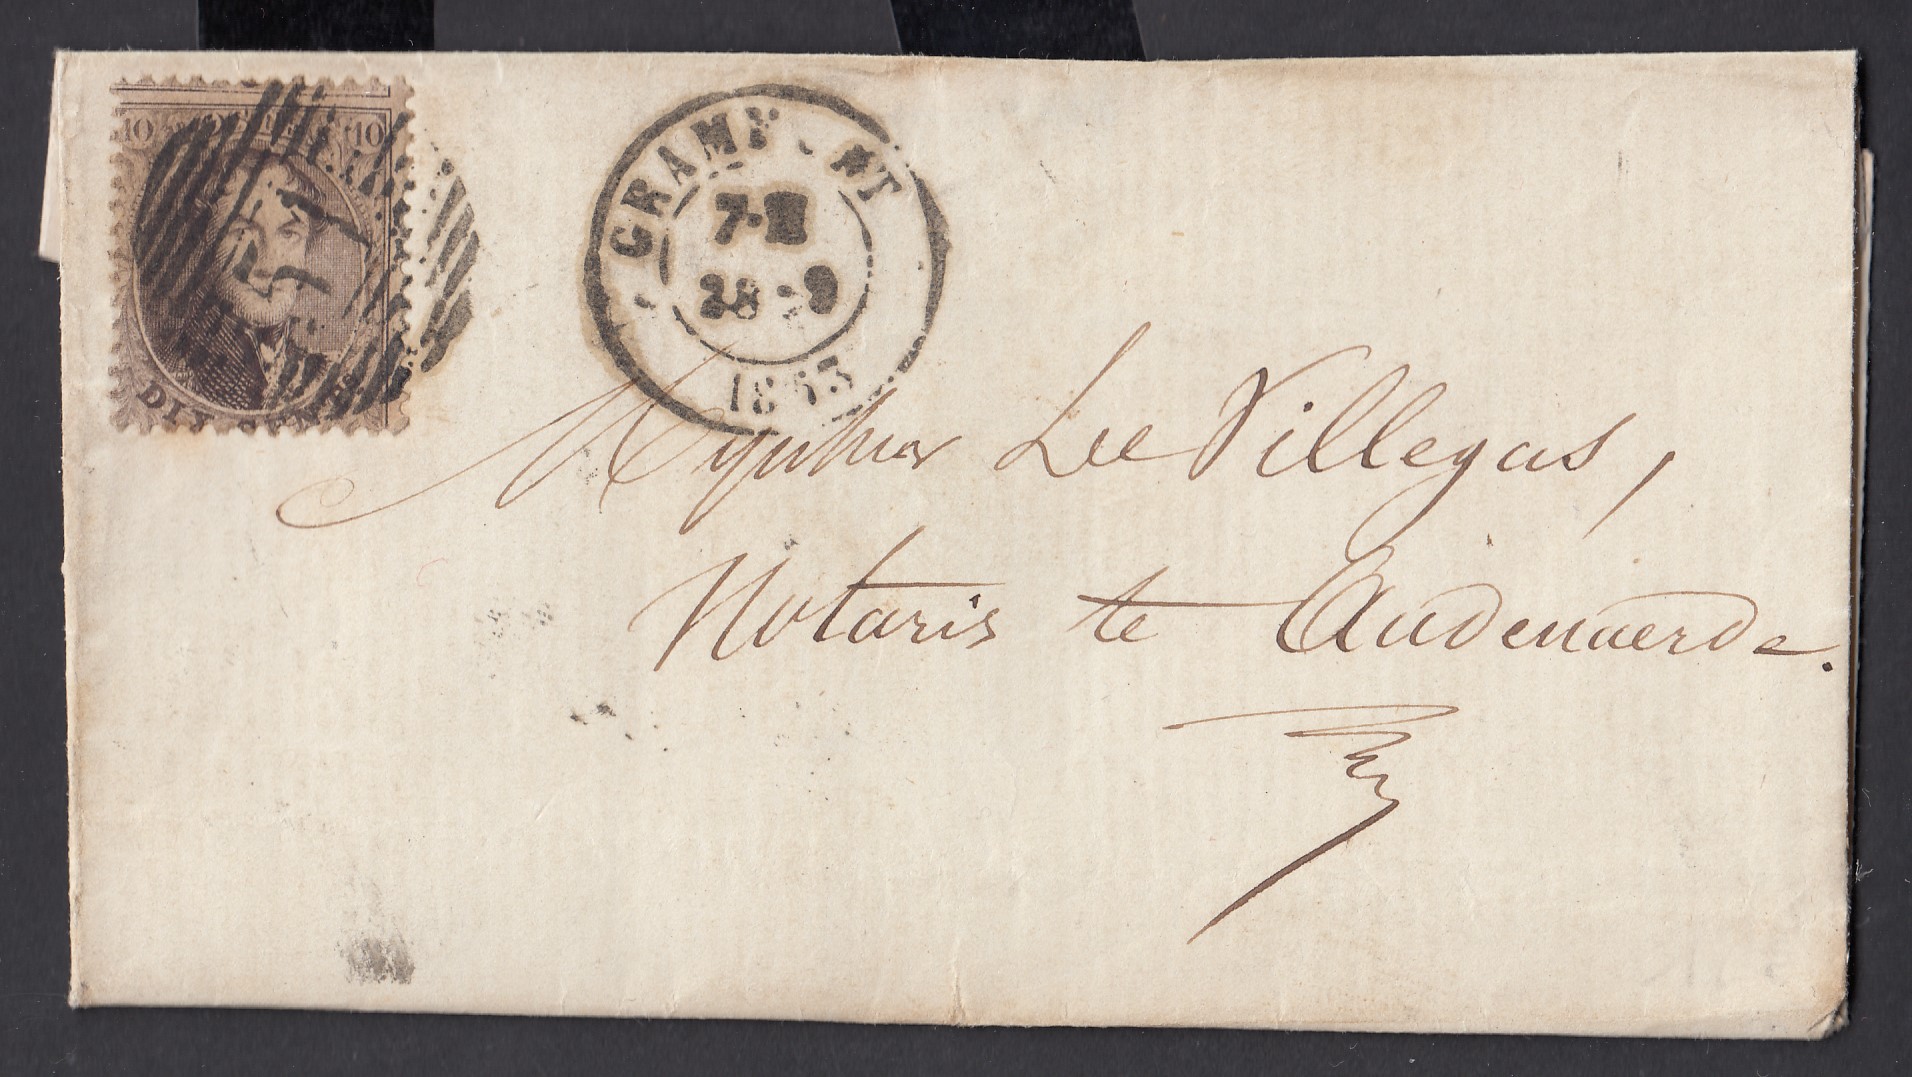 10 10
DIX CENT
GRAMM NT
7-
28 9
1863
Mynheer De Villegas,
Notaris te Audenaerde.